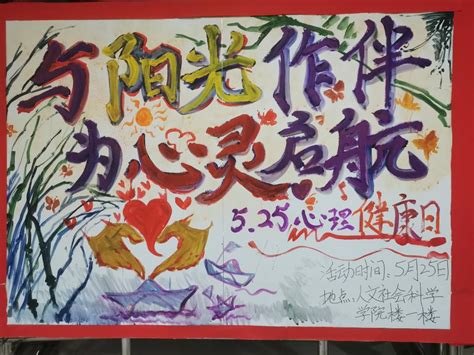 与阳光作伴
为心灵启航
5.25心理健康日
活动时间:5月25日
地点:人文社会科学
学院楼一楼